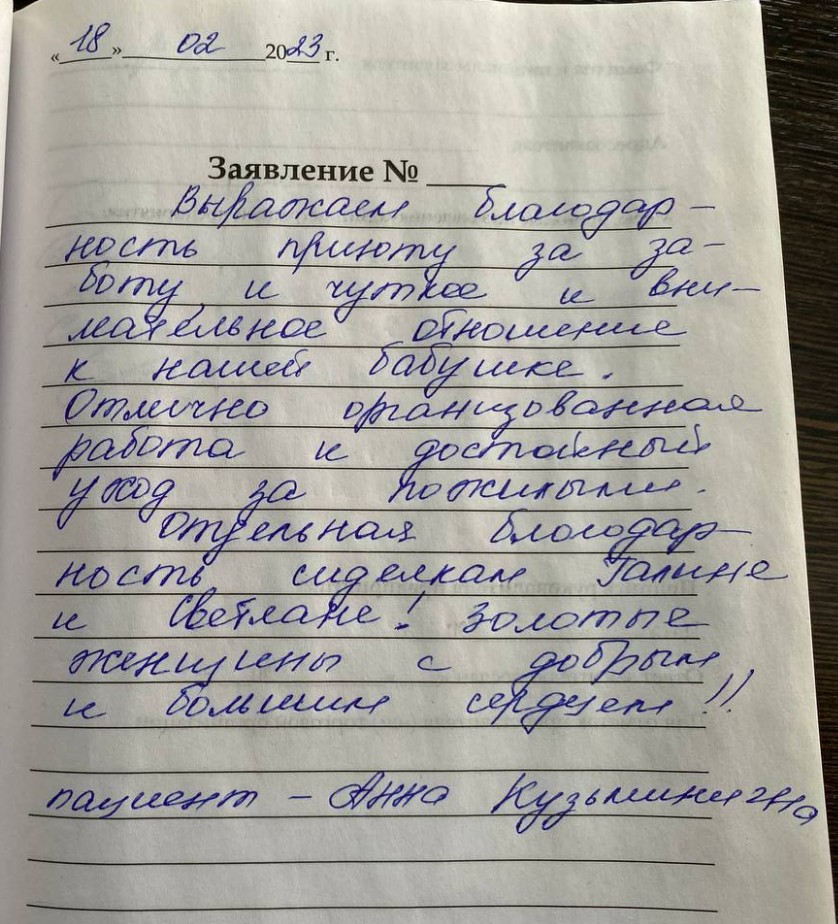 «18» 02 2023 г.
Заявление № ____
Выражаем благодар-
ность приюту за за-
боту и чуткое и вни-
мательное отношение
к нашей бабушке.
Отлично организованная
работа и достойный
уход за пожилыми.
Отдельная благодар-
ность сиделкам Галине
и Светлане! Золотые
женщины с добрым
и большим сердцем!!
пациент – Анна Кузьминична